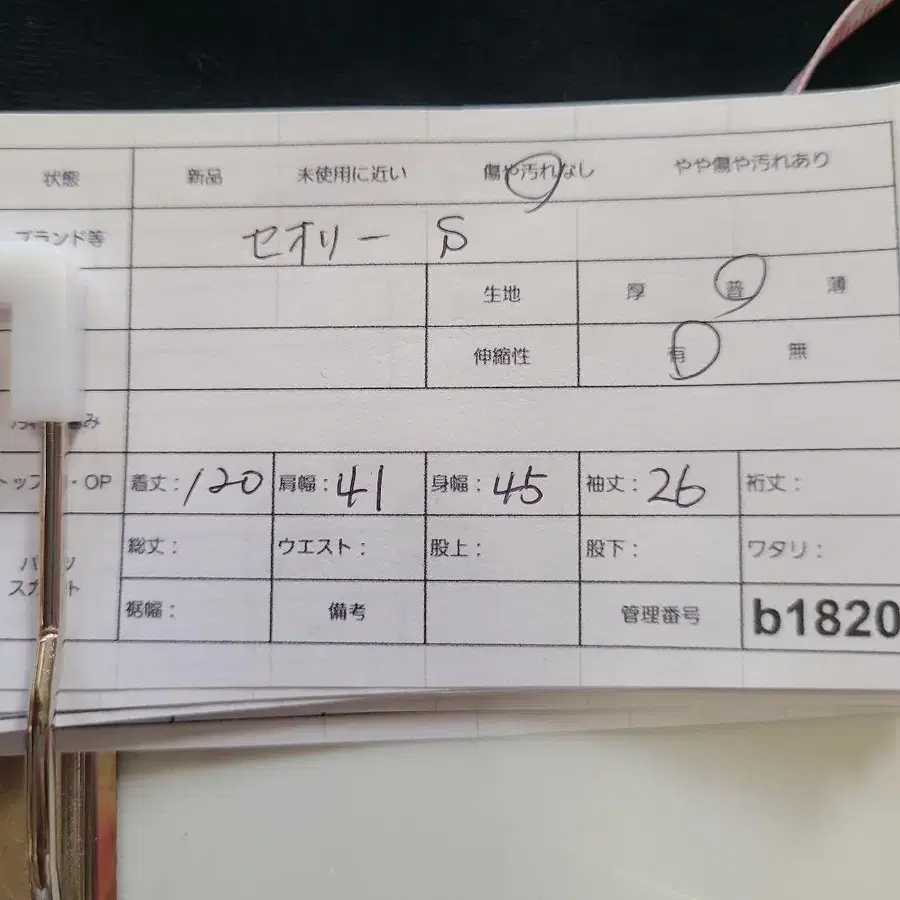 状態 新品 未使用に近い 傷や汚れなし やや傷や汚れあり
ブランド等 セオリー S
生地 厚 普 薄
伸縮性 有 無
トップス・OP 着丈：120 肩幅：41 身幅：45 袖丈：26 裄丈：
総丈： ウエスト： 股上： 股下： ワタリ：
裾幅： 備考 管理番号 b1820